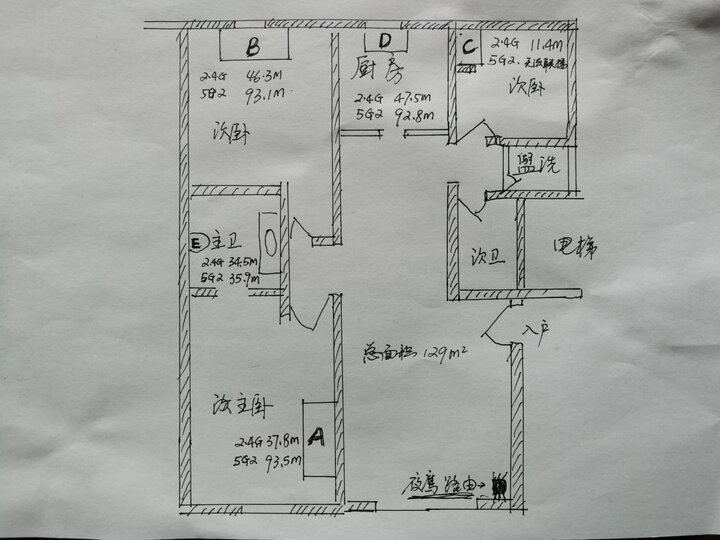 B
2.4G 46.3M
5G2 93.1M
次卧
D
厨房
2.4G 47.5M
5G2 92.8M
C
2.4G 11.4M
5G2. 无法联接
次卧
盥洗
E 主卫
2.4G 34.5M
5G2 35.9M
次卫
电梯
入户
总面积 129m²
主卧
A
2.4G 37.8M
5G2 93.5M
夜鹰路由→